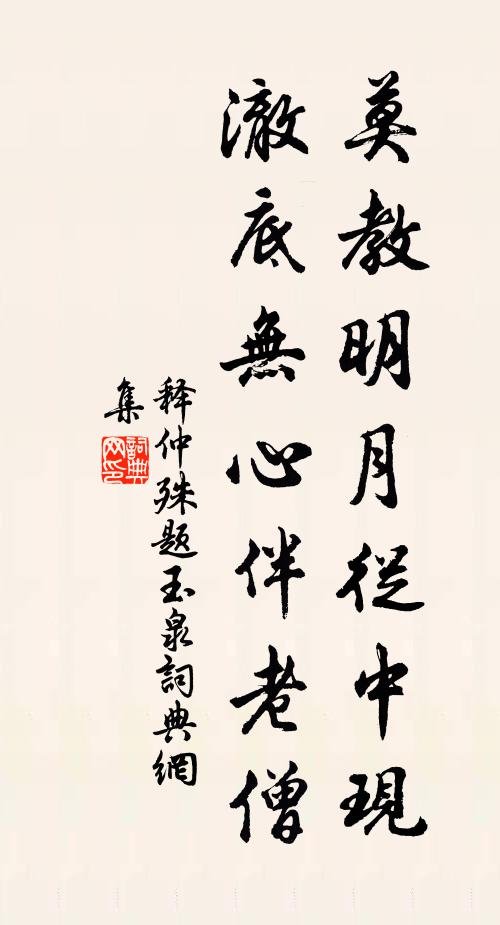 莫教明月從中現
澈底無心伴老僧
释仲殊题玉泉詞典網
集
詞典
网印